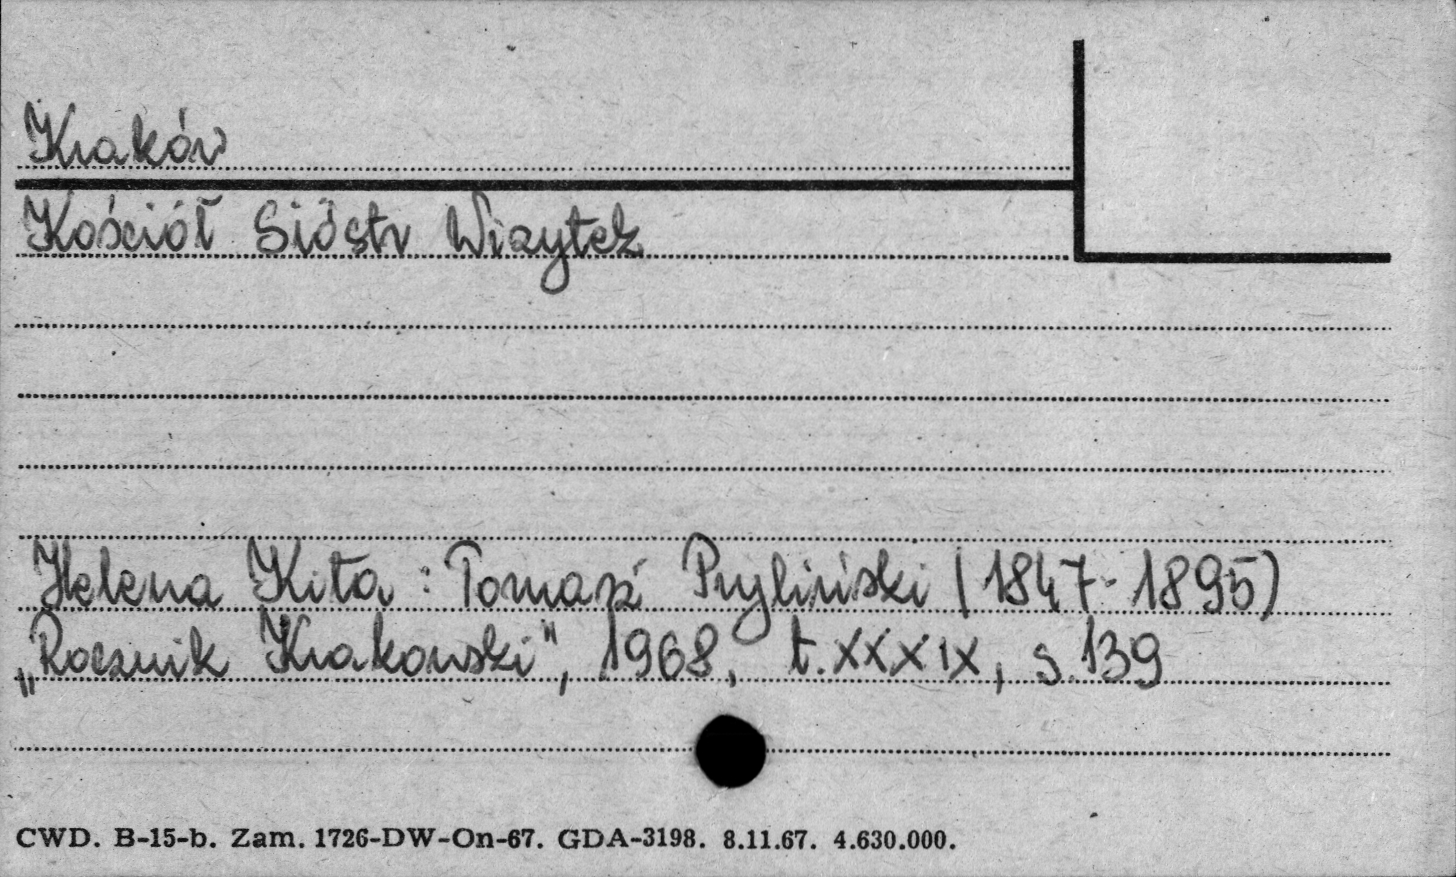 Kraków
Kościół Sióstr Wizytek
Helena Kita: Tomasz Pryliński (1847-1895)
„Rocznik Krakowski", 1968, t. XXXIX, s. 139
CWD. B-15-b. Zam. 1726-DW-On-67. GDA-3198. 8.11.67. 4.630.000.